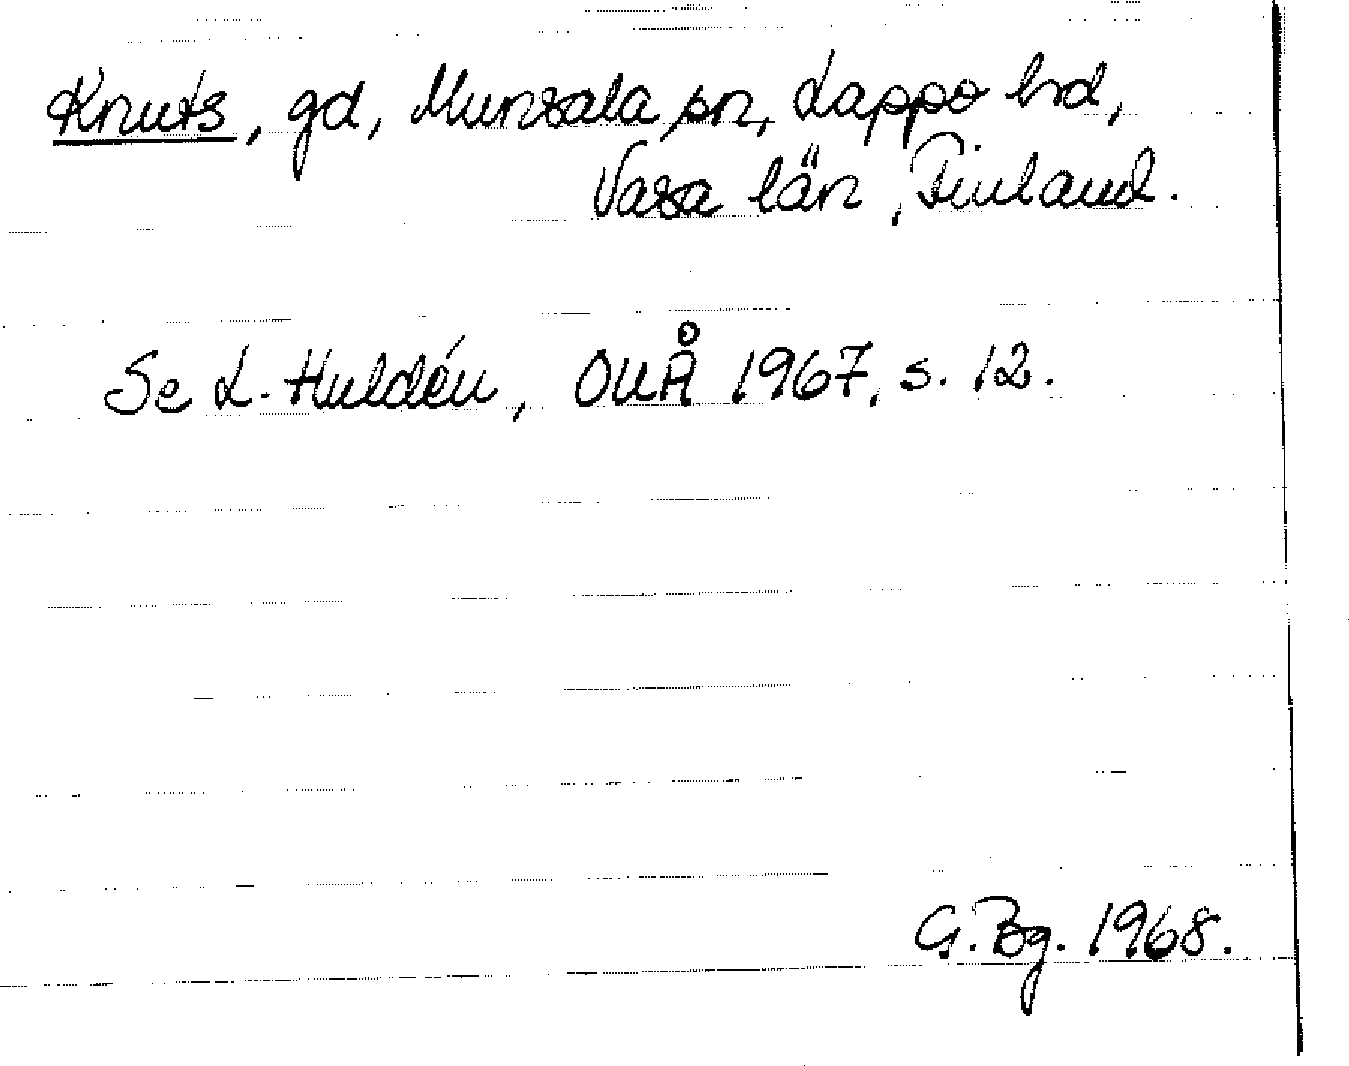 Knuts, gd, Munsala sn, Lappo hd,
Vasa län, Finland.
Se L. Huldén, OUÅ 1967, s. 12.
G. Bg. 1968.